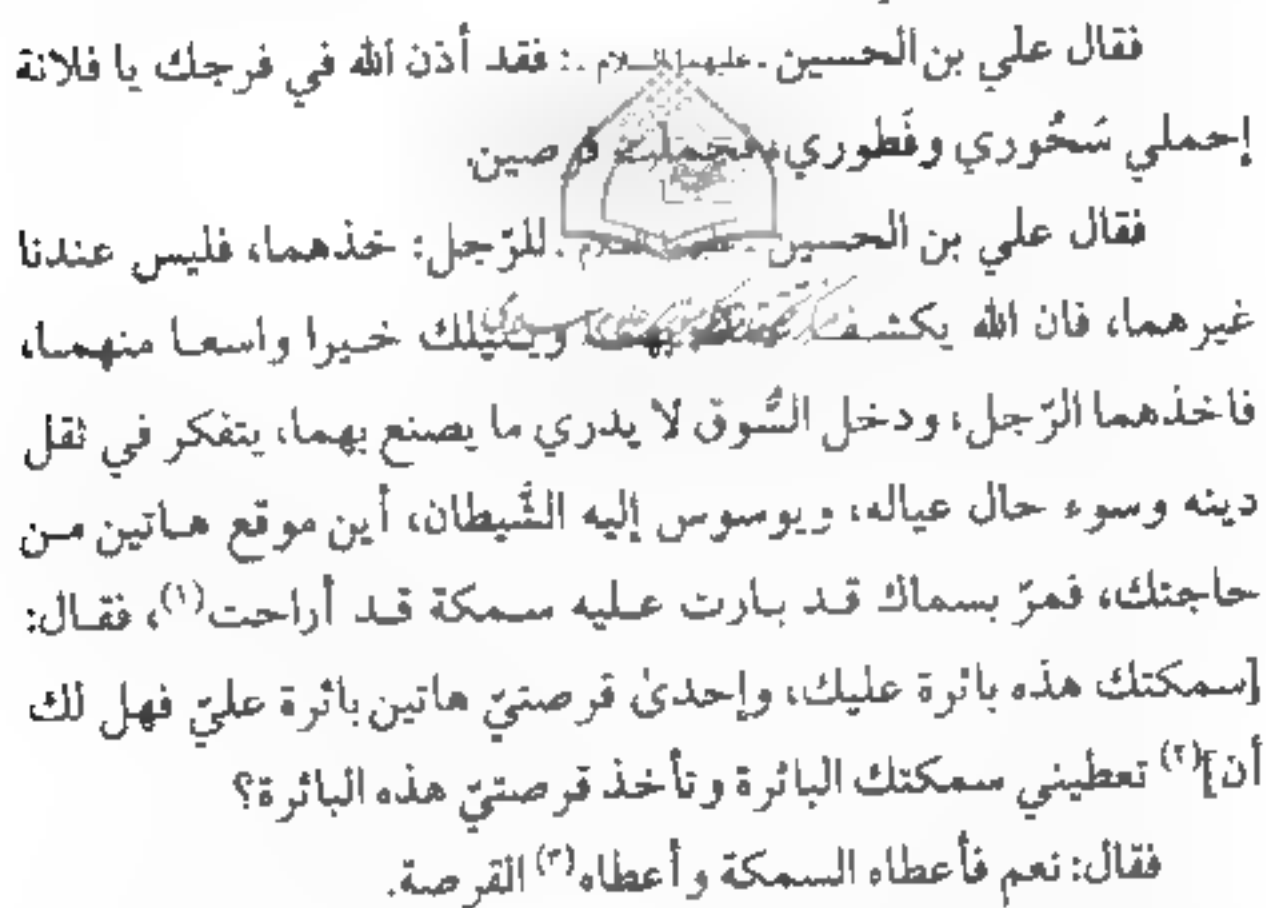 فقال علي بن الحسين ـ عليهما السلام ـ: فقد أذن الله في فرجك يا فلانة
إحملي سَحُوري وفَطوري، فحملت قرصين.
فقال علي بن الحسين ـ عليهما السلام ـ للرّجل: خذهما، فليس عندنا
غيرهما، فان الله يكشف بهما وينيلك خيرا واسعا منهما،
فاخذهما الرّجل، ودخل السُّوق لا يدري ما يصنع بهما، يتفكر في ثقل
دينه وسوء حال عياله، ويوسوس إليه الشَّيطان، أين موقع هاتين من
حاجتك، فمرّ بسماك قد بارت عليه سمكة قد أراحت(١)، فقال:
[سمكتك هذه بائرة عليك، وإحدىٰ قرصتيّ هاتين بائرة عليّ فهل لك
أن](٢) تعطيني سمكتك البائرة وتأخذ قرصتيّ هذه البائرة؟
فقال: نعم فأعطاه السمكة وأعطاه(٣) القرصة.